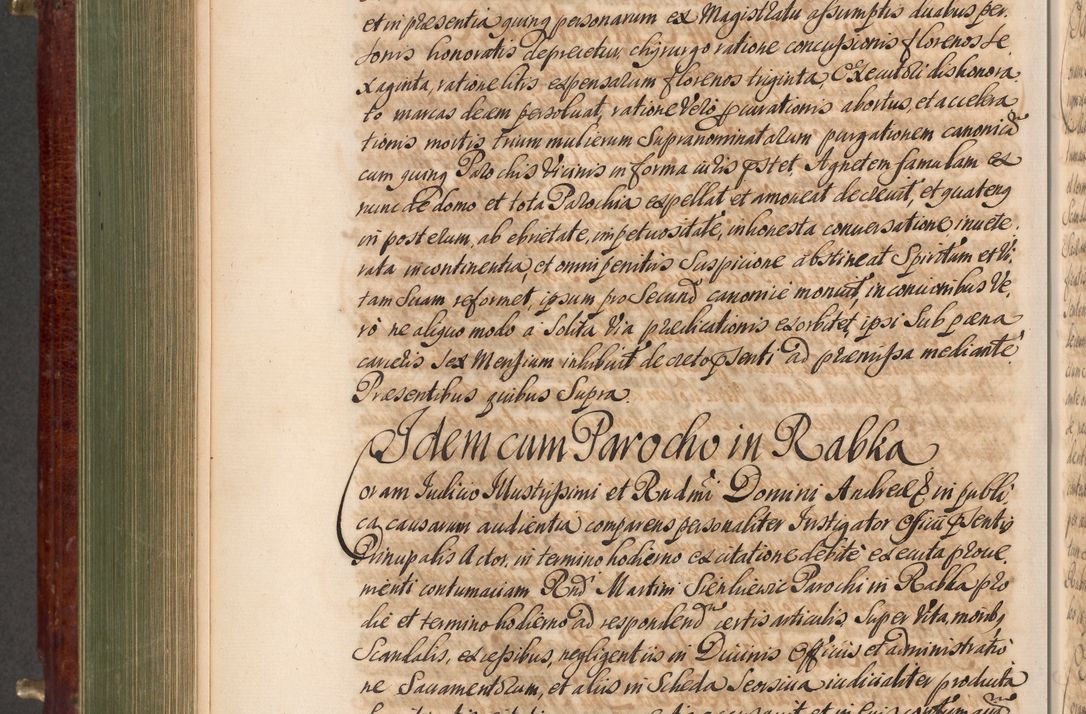 et in præsentia quinq personarum ex Magistratu assumptis duabus per,
sonis honoratis deprecetur, chyrurgo ratione concussionis florenos se,
xaginta, ratione litis expensarum florenos triginta, Executori dishonora,
to marcas decem persolvat, ratione verò procurationis abortus, et accelera
tionis mortis trium mulierum supranominatarum purgationem canonicã
cum quinq Parochis vicinis in forma iuris pstet, Agnetem famulam ex
nunc de domo et tota Parochia expellat et amoveat decrevit, et quateng
in posterum, ab ebrietate, impetuositate, inhonesta conversatione, invete,
rata incontinentia, et omni penitus suspicione abstineat Spiritum et vi,
tam suam reformet, ipsum pro secund canonice monuit, in concionibus ve,
rò ne aliquo modo à solita via prædicationis exorbitet, ipsi sub pœna
carceris sex Mensium inhibuit decreto psenti ad præmissa mediante
Præsentibus quibus supra.
Idem cum Parocho in Rabka
Coram Iudicio Illustrissimi et Rndmi Domini Andreæ & in publi
ca, causarum audientia comparens personaliter Instigator Officii psentis
Principalis Actor, in termino hodierno ex citatione debitè executa prove,
nienti contumaciam Rnd Martini Sienkiewic Parochi in Rabka pro
die et termino hodierno ad respondend certis articulis super vita, morib,
scandalis, excessibus, negligentiis in Divinis Officiis et administratio
ne Sacramentorum, et aliis in Scheda seorsiva iudicialiter producta